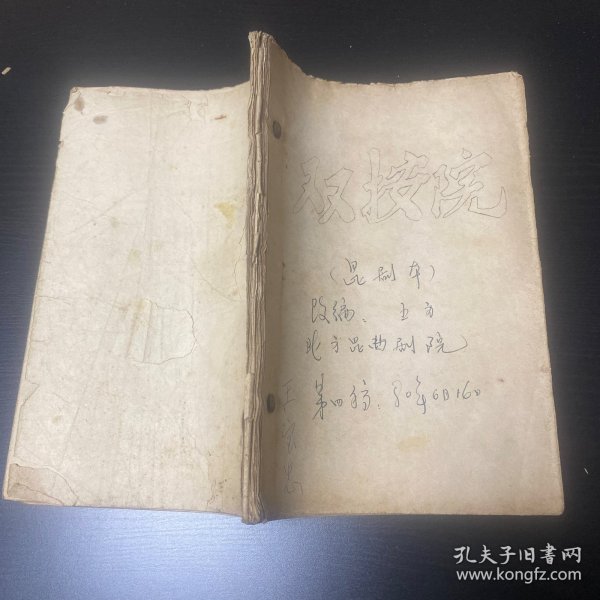 双按院
(昆剧本)
改编、王方
北方昆曲剧院
第四稿、80年6月16日
孔夫子旧书网
www.kongfz.com